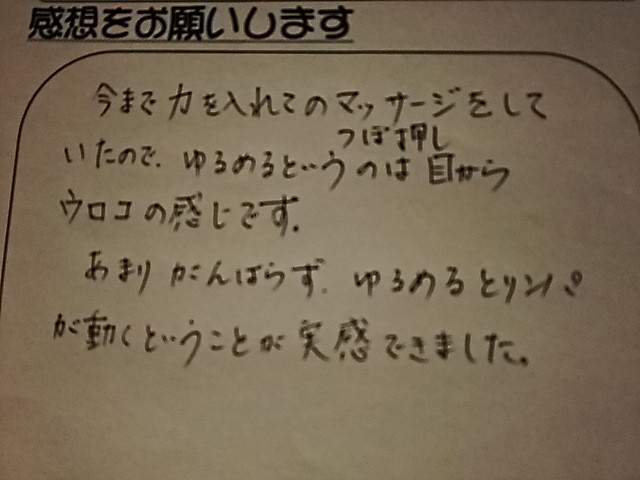 感想をお願いします
今まで力を入れてのマッサージをして
つぼ押し
いたので、ゆるめるというのは目から
ウロコの感じです。
あまりがんばらず、ゆるめるとリンパ
が動くということが実感できました。